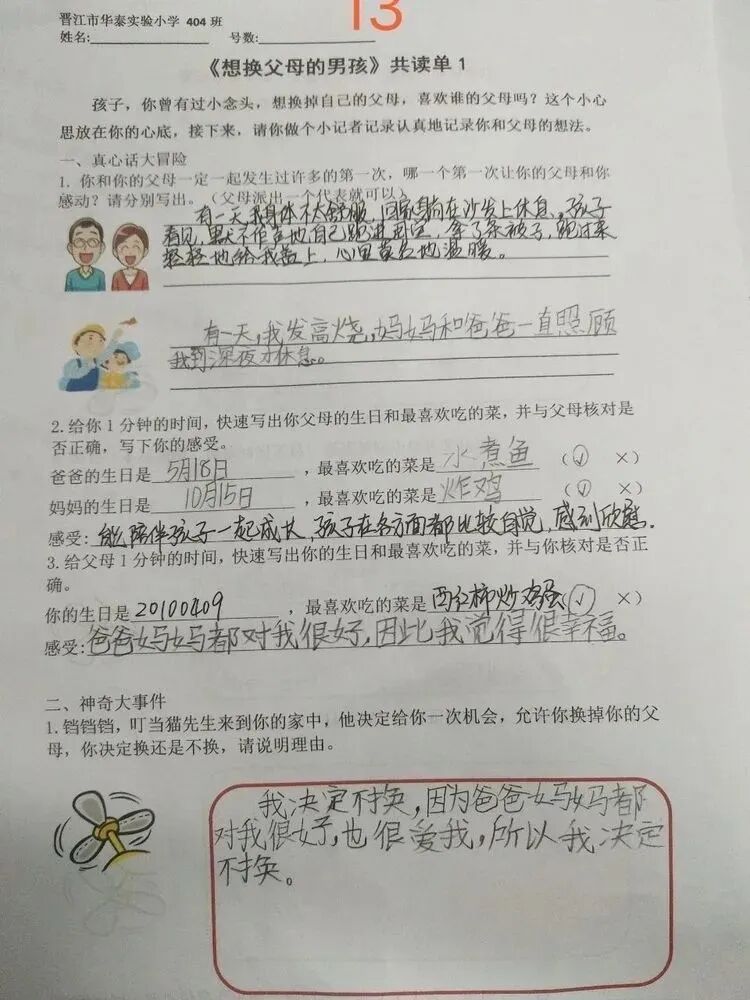 13
晋江市华泰实验小学 404 班
姓名:____________ 号数:____________
《想换父母的男孩》共读单 1
孩子，你曾有过小念头，想换掉自己的父母，喜欢谁的父母吗？这个小心
思放在你的心底，接下来，请你做个小记者记录认真地记录你和父母的想法。
一、真心话大冒险
1. 你和你的父母一定一起发生过许多的第一次，哪一个第一次让你的父母和你
感动？请分别写出。（父母派出一个代表就可以）
有一天我身体不太舒服，回家躺在沙发上休息，孩子
看见，默不作声地自己跑进房室，拿了条被子，跑过来
轻轻地给我盖上，心里莫名地温暖。
有一天，我发高烧，妈妈和爸爸一直照顾
我到深夜才休息。
2.给你 1 分钟的时间，快速写出你父母的生日和最喜欢吃的菜，并与父母核对是
否正确，写下你的感受。
爸爸的生日是 5月18日 ，最喜欢吃的菜是 水煮鱼 （√ ×）
妈妈的生日是 10月15日 ，最喜欢吃的菜是 炸鸡 （√ ×）
感受: 能陪伴孩子一起成长，孩子在各方面都比较自觉，感到欣慰.
3.给父母 1 分钟的时间，快速写出你的生日和最喜欢吃的菜，并与你核对是否正
确。
你的生日是 20100409 ，最喜欢吃的菜是 西红柿炒鸡蛋 （√ ×）
感受: 爸爸妈妈都对我很好，因此我觉得很幸福。
二、神奇大事件
1.铛铛铛，叮当猫先生来到你的家中，他决定给你一次机会，允许你换掉你的父
母，你决定换还是不换，请说明理由。
我决定不换，因为爸爸妈妈都
对我很好，也很爱我，所以我决定
不换。